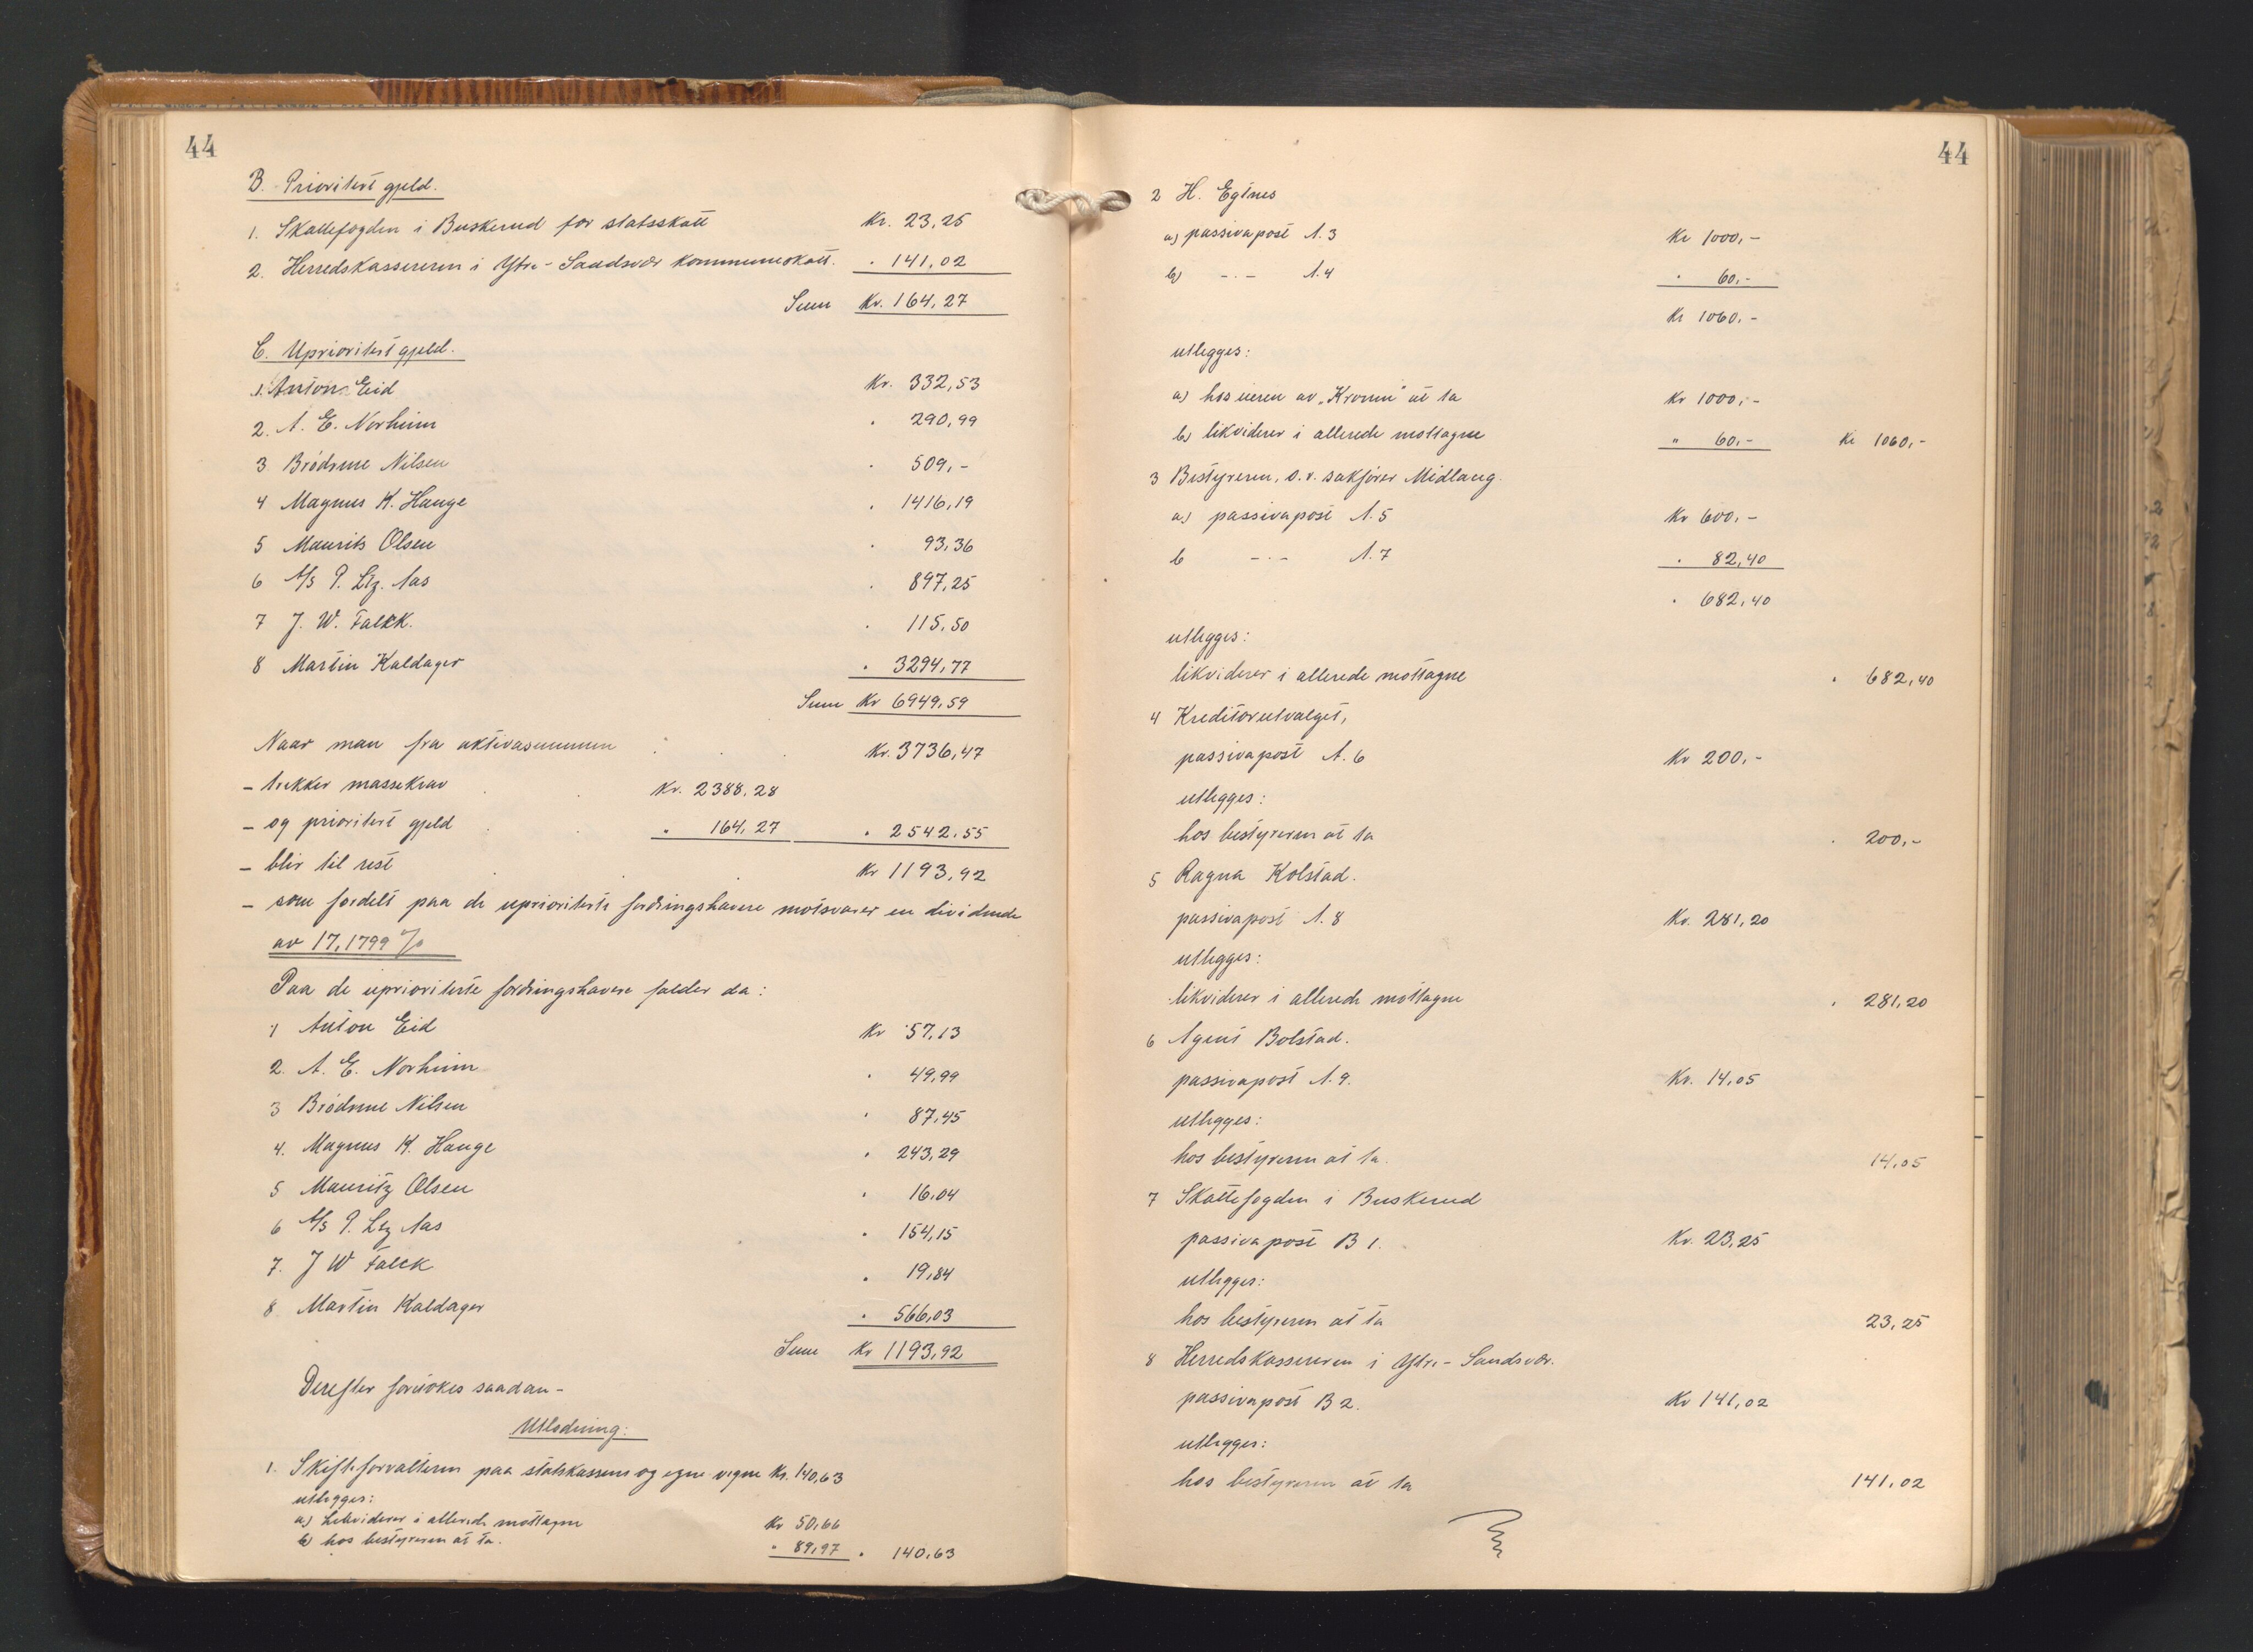 44
B. Prioritert gjeld.
1. Skattefogden i Buskerud for statsskatt Kr. 23,25
2. Herredskassereren i Ytre-Sandsvær kommuneskatt. " 141,02
Sum Kr. 164,27
C. Uprioritert gjeld.
1. Anton Eid Kr. 332,53
2. A. E. Norheim " 290,99
3 Brødrene Nilsen " 509,-
4 Magnus K. Hauge " 1416,19
5 Maurits Olsen " 93,36
6 A/s P. Ltz. Aas " 897,25
7 J. W. Falck. " 115,50
8 Martin Kaldager " 3294,77
Sum Kr 6949,59
Naar man fra aktivasummen Kr. 3736,47
- trekker massekrav Kr. 2388,28
- og prioritert gjeld " 164,27 " 2542,55
- blir til rest Kr 1193,92
- som fordelt paa de uprioriterte fordringshavere motsvarer en dividende
av 17,1799 %
Paa de uprioriterte fordringshavere falder da:
1 Anton Eid Kr 57,13
2. A. E. Norheim " 49,99
3 Brødrene Nilsen " 87,45
4. Magnus K. Hauge " 243,29
5 Mauritz Olsen " 16,04
6 A/s P. Ltz Aas " 154,15
7. J W Falck " 19,84
8 Martin Kaldager " 566,03
Sum Kr 1193,92
Derefter foretokes saadan -
Utlodning:
1. Skifteforvalteren paa statskassens og egne vegne Kr. 140,63
utlegges:
a) Likviderer i allerede mottagne Kr 50,66
b) hos bestyreren at ta. " 89,97 " 140,63
44
2 H. Egtnes
a) passivapost A. 3 Kr 1000,-
b) -"- A. 4 " 60,-
Kr 1060,-
utlegges:
a) hos eieren av "Kronen" at ta Kr 1000,-
b) likviderer i allerede mottagne " 60,- Kr 1060,-
3 Bestyreren, o.r. sakfører Midlaug.
a) passivapost A. 5 Kr 600,-
b -"- A. 7 " 82,40
" 682,40
utlegges:
likviderer i allerede mottagne " 682,40
4 Kreditorutvalget,
passivapost A. 6 Kr 200,-
utlegges:
hos bestyreren at ta " 200,-
5 Ragna Kolstad.
passivapost A. 8 Kr. 281,20
utlegges:
likviderer i allerede mottagne " 281,20
6 Agent Bolstad.
passivapost A. 9. Kr. 14,05
utlegges:
hos bestyreren at ta. 14,05
7 Skattefogden i Buskerud
passivapost B 1. Kr. 23,25
utlegges:
hos bestyreren at ta 23,25
8 Herredskassereren i Ytre-Sandsvær.
passivapost B 2. Kr 141,02
utlegges:
hos bestyreren at ta 141,02